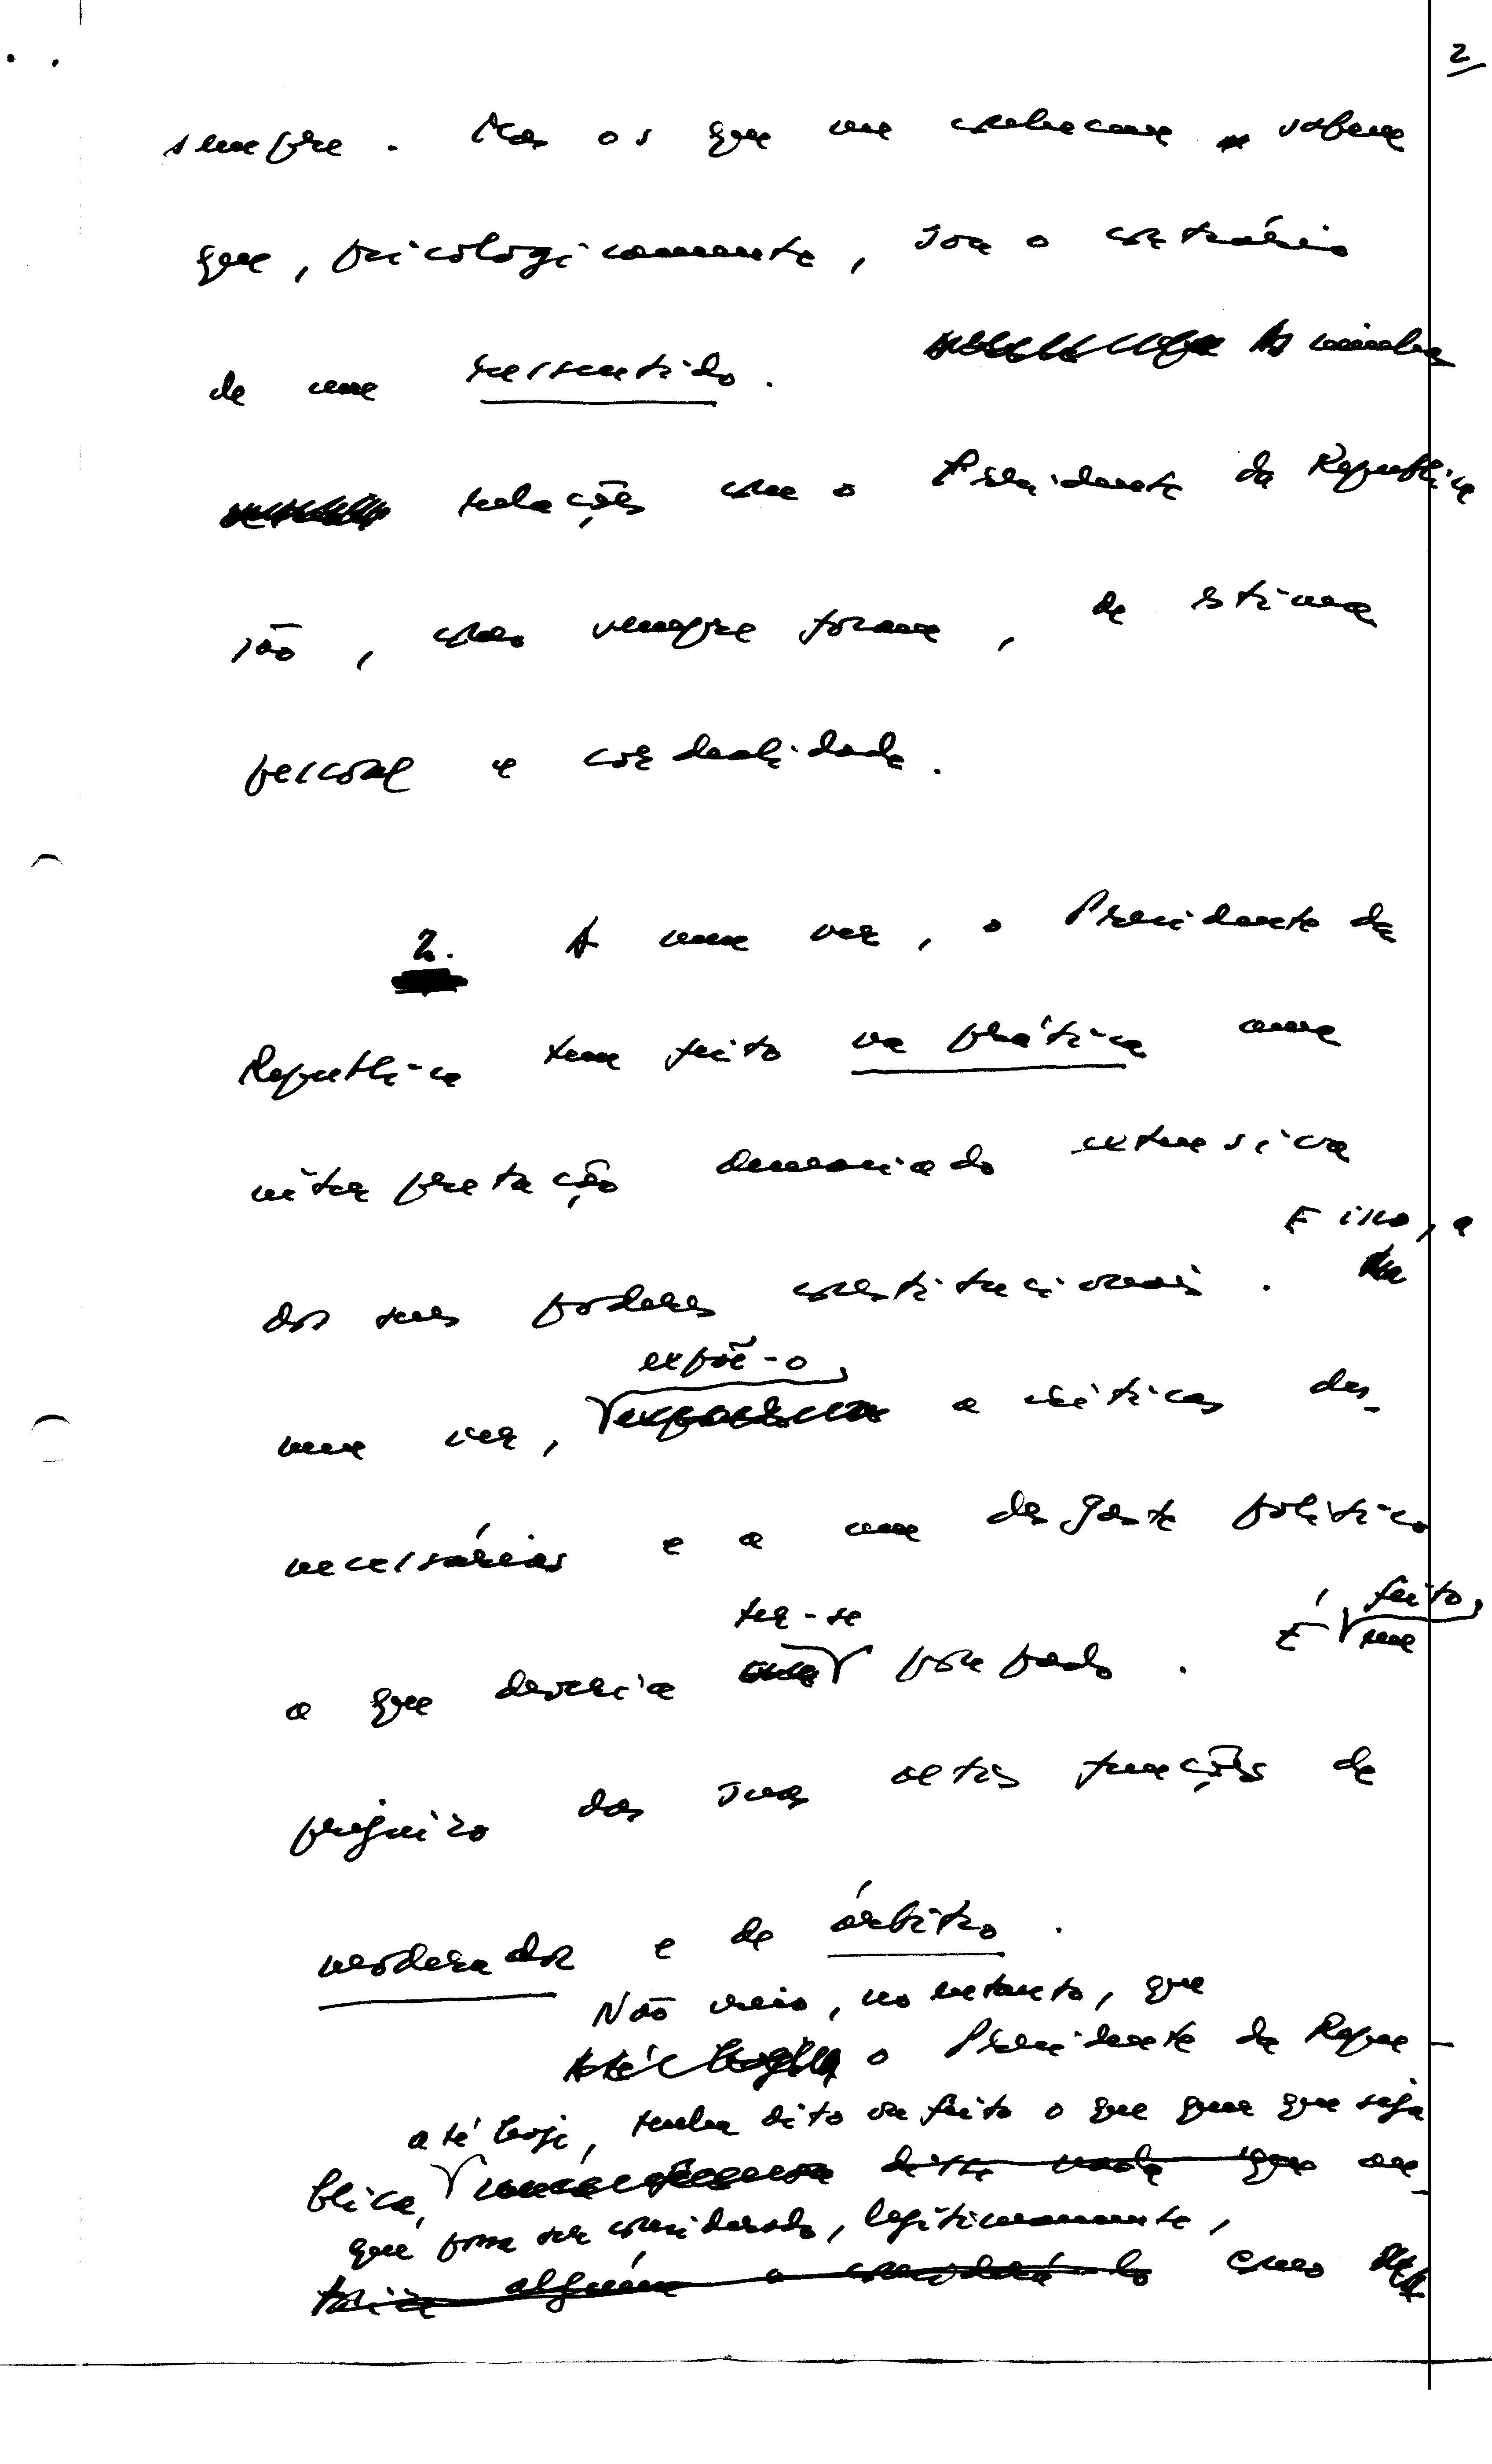 2
sempre. Mas os que me conhecem sabem
que, psicologicamente, sou o contrário
de um ressentido. As minhas
relações com o Presidente da República
são, como sempre foram, de estima
pessoal e cordealidade.
2. A meu ver, o Presidente da
República tem feito na prática uma
interpretação demasiado extensiva
E isso, a
dos seus poderes constitucionais.
expõe-o
meu ver, a críticas des-
necessárias e a um desgaste político
ter-se feito,
a que deveria poupado. É em
prejuízo das suas altas funções de
moderador e de árbitro.
Não creio, no entanto, que
o Presidente da Repú-
até hoje, tenha dito ou feito o que quer que seja
blica, disse nada que au-
que possa ser considerado, legitimamente,
torize alguém a considerá-lo como